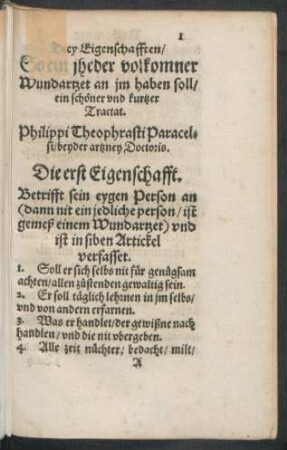 1
Drey Eigenschafften/
So ein jheder volkomner
Wundartzet an jm haben soll/
ein schöner vnd kurtzer
Tractat.
Philippi Theophrasti Paracel-
si/beyder artzney Doctoris.
Die erst Eigenschafft.
Betrifft sein eygen Person an
(dann nit ein jedliche person/ist
gemeß einem Wundartzet) vnd
ist in siben Artickel
verfasset.
1. Soll er sich selbs nit für genügsam
achten/allen züstenden gewaltig sein.
2. Er soll täglich lehrnen in jm selbs/
vnd von andern erfarnen.
3. Was er handlet/der gewißne nach
handlen/vnd die nit vbergeben.
4. Alle zeit nüchter/bedacht/milt/
A